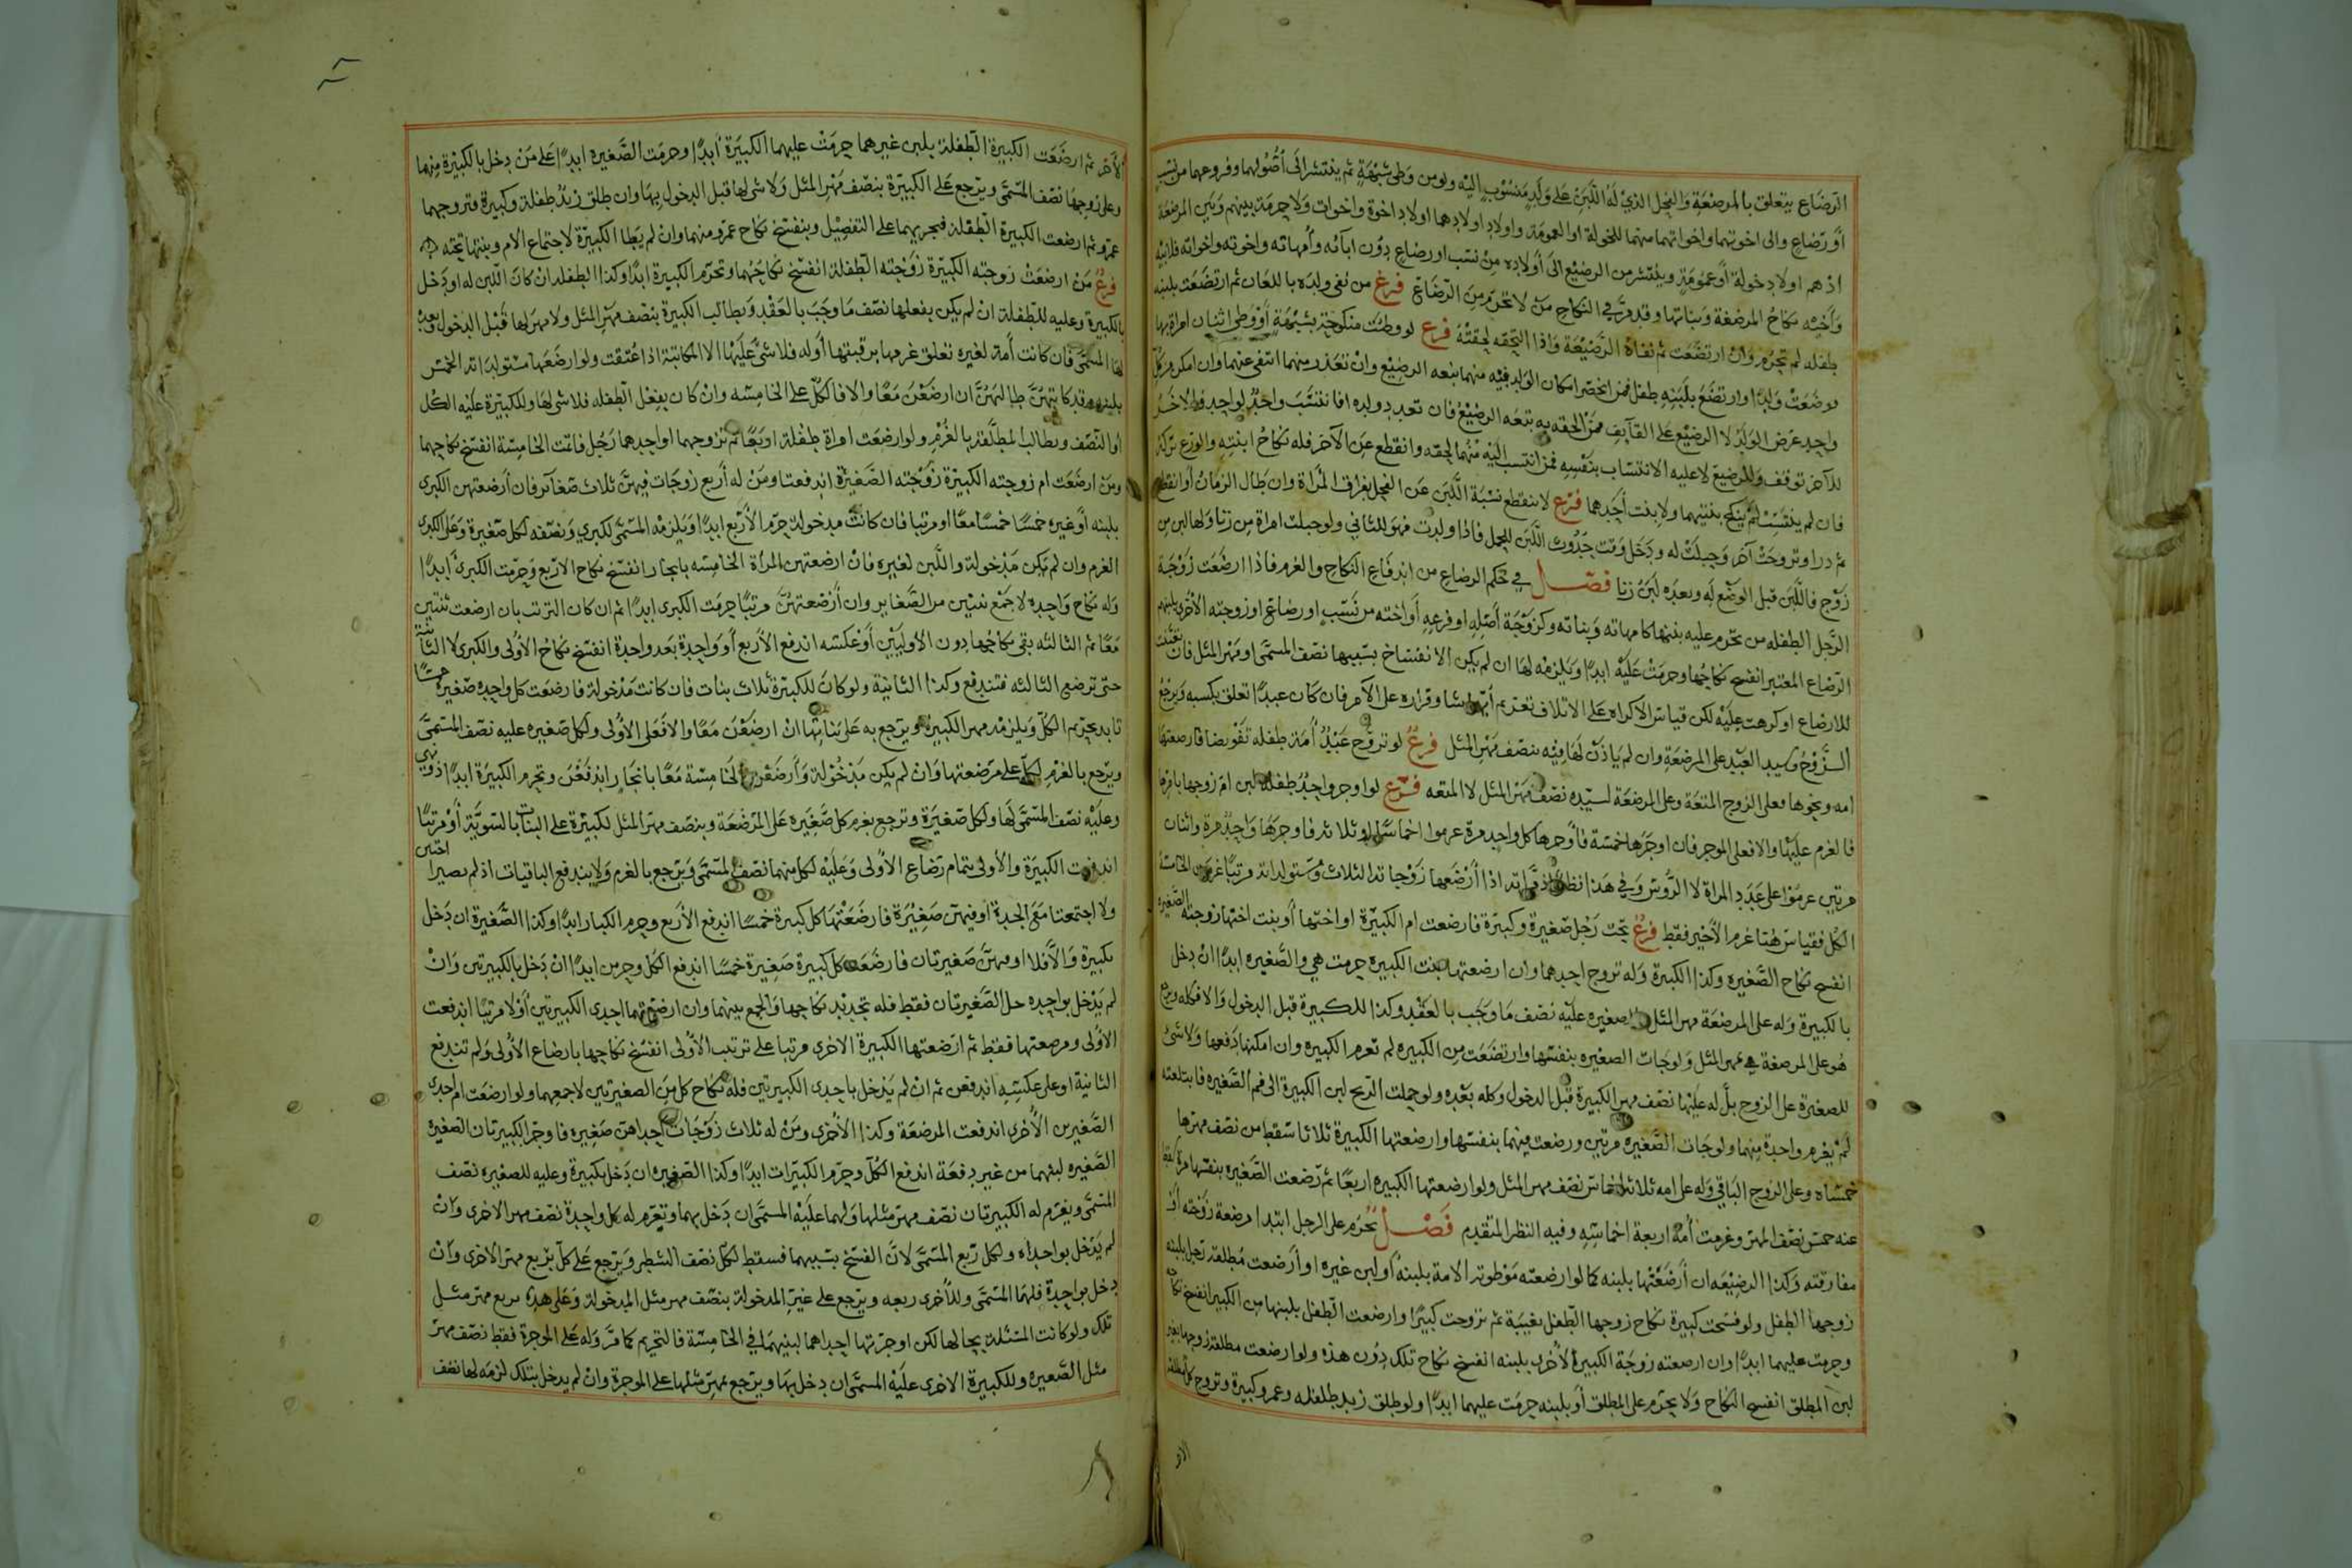 الرضاع يتعلق بالمرضعة والفحل الذي له اللبن على ولد منسوب اليه ولو من وطئ شبهة ثم ينتشر الى أصولهما وفروعهما من نسب
أو رضاع والى اخوتهما واخواتهما منهما للخولة او العمومة واولاد اولادهما اولاد اخوة واخوات ولا حرمة بينهم وبين المرضعة
اذ هم اولاد خولة أو عمومة وينتشر من الرضيع الى أولاده من نسب او رضاع دون ابائه وأمهاته واخوته واخواته فلابيه
وأخيه نكاح المرضعة وبناتها وقد مر في النكاح من لا تحرم من الرضاع فرع من نفى ولده باللعان ثم ارتضعت بلبنه
طفلة لم تحرم وان ارتضعت ثم نفاه الرضيعة واذا التحقه لحقته فرع لو وطئت منكوحة بشبهة أو وطئ اثنان امراة بها
فوضعت ولدا وارتضع بلبنه طفل فمن انحصر امكان الولد فيه منهما تبعه الرضيع وان تعذر منهما انتفى عنهما وان امكن من كل
واحد عرض الولد لا الرضيع على القايف فمن الحقه به تبعه الرضيع فان تعدد ولده فانتسب واحد لواحد والاخر
للآخر توقف وللرضيع لا عليه الانتساب بنفسه فمن انتسب اليه منهما لحقه وانقطع عن الآخر فله نكاح ابنته والورع تركه
فان لم ينتسب لم ينكح بنتيهما ولا بنت أحدهما فرع لا تنقطع نسبة اللبن عن الفحل بفراق المرأة وان طال الزمان أو انقطع
ثم در او تزوجت آخر وحبلت له ودخل وقت حدوث اللبن للحمل فاذا ولدت فهو للثاني ولو حبلت امراة من زنا ولها لبن من
زوج فاللبن قبل الوضع له وبعده لبن زنا فصل في حكم الرضاع من اندفاع النكاح والغرم فاذا ارضعت زوجة
الرجل الطفلة من تحرم عليه بنتها كامهاته وبناته وكزوجة أصله او فرعه أو اخته من نسب او رضاع او زوجته الاخرى بلبنهم
الرضاع المعتبر انفسخ نكاحها وحرمت عليه ابدا ويلزمه لها ان لم يكن الانفساخ بسببها نصف المسمى او مهر المثل فان
للارضاع او كرهت عليه لكن قياس الاكراه على الاتلاف تغريم أيهما شا وقراره على الآمر فان كان عبدا تعلق بكسبه ويرجع
الزوج وسيد العبد على المرضعة وان لم ياذن لها فيه بنصف مهر المثل فرع لو تزوج عبد أمة طفلة تفويضا فارضعتها
امه ونحوها فعلى الزوج المتعة وعلى المرضعة لسيده نصف مهر المثل لا المتعة فرع لو اوجر واحد طفلة لبن ام زوجها بامرها
فالغرم عليها والا فعلى الموجر فان اوجرها خمسة فاوجرها كل واحد مرة غرموا اخماسا او ثلاثة فاوجرها واحد مرة واثنان
مرتين غرموا على عدد المراة لا الرؤس وفي هذا نظر
الكل فقياس هنا غرم الأخير فقط فرع تحت رجل صغيرة وكبيرة فارضعت ام الكبيرة او اختها أو بنت اختها زوجته الصغيرة
انفسخ نكاح الصغيرة وكذا الكبيرة وله تزوج احدهما وان ارضعتها بنت الكبيرة حرمت هي والصغيرة ابدا ان دخل
بالكبيرة وله على المرضعة مهر المثل وللصغيرة عليه نصف ما وجب بالعقد وكذا للكبيرة قبل الدخول والا فكله ويرجع
هو على المرضعة بمهر المثل ولو جات الصغيرة بنفسها وارتضعت من الكبيرة لم تغرم الكبيرة وان امكنها دفعها ولا شئ
للصغيرة على الزوج بل له عليها نصف مهر الكبيرة قبل الدخول وكله بعده ولو حملت الريح لبن الكبيرة الى فم الصغيرة فابتلعته
لم يغرم واحدة منهما ولو جات الصغيرة مرتين ورضعت فيهما بنفسها وارضعتها الكبيرة ثلاثا سقط من نصف مهرها
خمساه وعلى الزوج الباقي وله على امه ثلاثة اخماس نصف مهر المثل ولو ارضعتها الكبيرة اربعا ثم رضعت الصغيرة بنفسها مرة سقط
عنه خمس نصف المهر وغرمت أمه اربعة اخماسه وفيه النظر المتقدم فصل تحرم على الرجل ابتدا مرضعة زوجته أو
مفارقته وكذا الرضيعة ان أرضعتها بلبنه كما لو ارضعته موطوته الامة بلبنه أو لبن غيره او أرضعت مطلقة رجل بلبنه
زوجها الطفل ولو فسخت كبيرة نكاح زوجها الطفل بعيبه ثم تزوجت كبيرا وارضعت الطفل بلبنها من الكبير انفسخ نكاحه
وحرمت عليهما ابدا وان ارضعته زوجة الكبير الأخرى بلبنه انفسخ نكاح تلك دون هذه ولو ارضعت مطلقة زوجها بغير
لبن المطلق انفسخ النكاح ولا يحرم على المطلق أو بلبنه حرمت عليهما ابدا ولو طلق زيد طفلة وعمرو كبيرة وتزوج كل مطلقة
الاخر
الآخر ثم ارضعت الكبيرة الطفلة بلبن غيرهما حرمت عليهما الكبيرة أبدا وحرمت الصغيرة ابدا على من دخل بالكبيرة منهما
وعلى زوجها نصف المسمى ويرجع على الكبيرة بنصف مهر المثل ولا شئ لها قبل الدخول بها وان طلق زيد طفلة وكبيرة فتزوجهما
عمرو ثم ارضعت الكبيرة الطفلة فتحريمها على التفصيل وينفسخ نكاح عمرو منهما وان لم يطا الكبيرة لاجتماع الام وبنتها تحته
فرع من ارضعت زوجته الكبيرة زوجته الطفلة انفسخ نكاحهما وتحرم الكبيرة ابدا وكذا الطفلة ان كان اللبن له او دخل
بالكبيرة وعليه للطفلة ان لم يكن بفعلها نصف ما وجب بالعقد ويطالب الكبيرة بنصف مهر المثل ولا مهر لها قبل الدخول وبعده
لها المسمى فان كانت أمة لغيره تعلق غرمها برقبتها أو له فلا شئ عليها الا المكاتبة اذا عتقت ولو ارضعتها مستولداته الخمس
بلبنه وقد كاتبهن طالبهن ان ارضعن معا والا فالكل على الخامسة وان كان بفعل الطفلة فلا شئ لها وللكبيرة عليه الكل
او النصف ويطالب المطلقة بالغرم ولو ارضعت امراة طفلة اربعا ثم تزوجهما او احدهما رجل فاتت الخامسة انفسخ نكاحهما
ومن ارضعت ام زوجته الكبيرة زوجته الصغيرة اندفعتا ومن له أربع زوجات فيهن ثلاث صغائر فان أرضعتهن الكبرى
بلبنه أو غيره خمسا خمسا معا او مرتبا فان كانت مدخولة حرم الأربع ابدا ويلزمه المسمى لكبرى ونصفه لكل صغيرة وعلى الكبرى
الغرم وان لم يكن مدخولة واللبن لغيره فان ارضعتهن المرأة الخامسة بايجار انفسخ نكاح الاربع وحرمت الكبرى ابدا
وله نكاح واحدة لا جمع ثنتين من الصغاير وان أرضعتهن مرتبا حرمت الكبرى ابدا ثم ان كان الترتب بان ارضعت ثنتين
معا ثم الثالثة بقى نكاحها دون الأوليين أو عكسه اندفع الأربع أو واحدة بعد واحدة انفسخ نكاح الأولى والكبرى لا الثانية
حتى ترضع الثالثة فتندفع وكذا الثانية ولو كان للكبيرة ثلاث بنات فان كانت مدخولة فارضعت كل واحدة صغيرة خمسا
تابد تحريم الكل ويلزمه مهر الكبيرة ويرجع به على بناتها ان ارضعن معا والا فعلى الأولى ولكل صغيرة عليه نصف المسمى
ويرجع بالغرم لكل على مرضعتها وان لم يكن مدخولة وأرضعن الخامسة معا بايجار اندفعن وتحرم الكبيرة ابدا
وعليه نصف المسمى لها ولكل صغيرة ويرجع بغرم كل صغيرة على المرضعة وبنصف مهر المثل لكبيرة على البنات بالسوية أو مرتبا
اندفعت الكبيرة والأولى بتمام رضاع الأولى وعليه لكل منهما نصف المسمى ويرجع بالغرم ولا يندفع الباقيات اذ لم يصيرا اختين
ولا اجتمعتا مع الجدة او فيهن صغيرة فارضعتها كل كبيرة خمسا اندفع الأربع وحرم الكبار ابدا وكذا الصغيرة ان دخل
بكبيرة والا فلا او فيهن صغيرتان فارضعت كل كبيرة صغيرة خمسا اندفع الكل وحرمن ابدا ان دخل بالكبيرتين وان
لم يدخل بواحدة حل الصغيرتان فقط فله تجديد نكاحها والجمع بينهما وان ارضعتهما احدى الكبيرتين أولا مرتبا اندفعت
الأولى ومرضعتها فقط ثم ارضعتها الكبيرة الاخرى مرتبا على ترتيب الأولى انفسخ نكاحها بارضاع الأولى ولم تندفع
الثانية او على عكسه اندفعن ثم ان لم يدخل باحدى الكبيرتين فله نكاح كل من الصغيرتين لا جمعهما ولو ارضعت ام احدى
الصغيرتين الأخرى اندفعت المرضعة وكذا الأخرى ومن له ثلاث زوجات احداهن صغيرة فاوجر الكبيرتان الصغيرة
الصغيرة لبنهما من غير دفعة اندفع الكل وحرم الكبيرات ابدا وكذا الصغيرة ان دخل بكبيرة وعليه للصغيرة نصف
المسمى ويغرم له الكبيرتان نصف مهر مثلها ولهما عليه المسمى ان دخل بهما وتغرم له كل واحدة نصف مهر الاخرى وان
لم يدخل بواحدة ولكل ربع المسمى لان الفسخ بسببهما فسقط لكل نصف الشطر ويرجع على كل بربع مهر الاخرى وان
دخل بواحدة فلها المسمى وللأخرى ربعه ويرجع على غير المدخولة بنصف مهر مثل المدخولة وعلى هذه بربع مهر مثل
تلك ولو كانت المسئلة بحالها لكن اوجرتها احداهما لبنيهما في الخامسة فالتحريم كما مر وله على الموجرة فقط نصف مهر
مثل الصغيرة وللكبيرة الاخرى عليه المسمى ان دخل بها ويرجع بمهر مثلها على الموجرة وان لم يدخل بتلك لزمه لها نصف